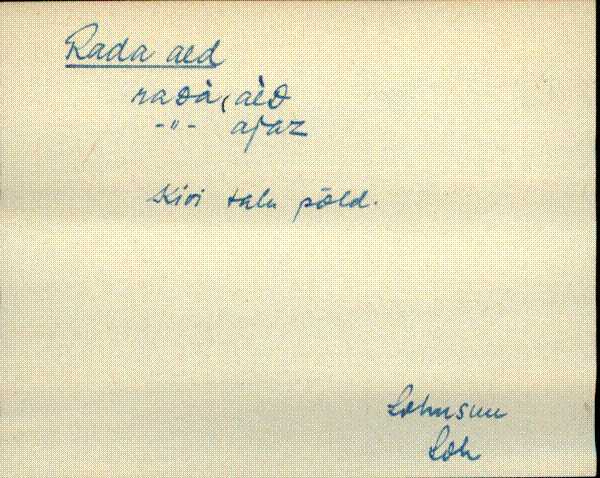 Rada aed
raᴅà, aèᴅ
-"- ajaz
Kivi talu põld.
Lohusuu
Loh